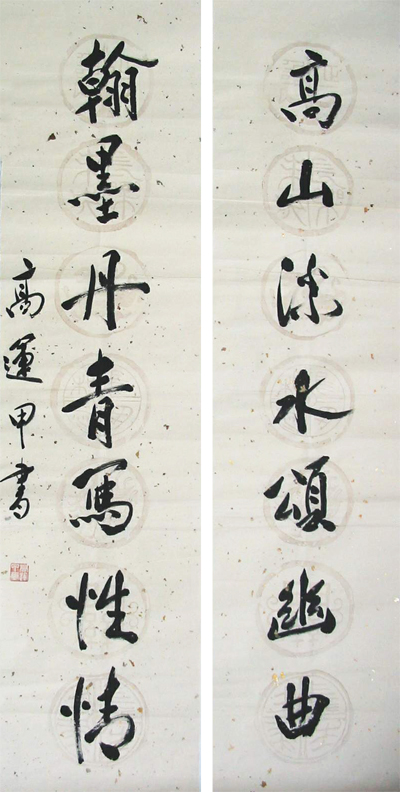 高山流水頌幽曲
翰墨丹青寫性情
高運甲書